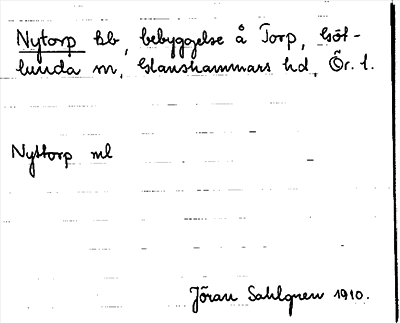 Nytorp bb, bebyggelse å Torp, Göt-
lunda sn, Glanshammars hd, Ör. l.
Nyttorp ml
Jöran Sahlgren 1910.